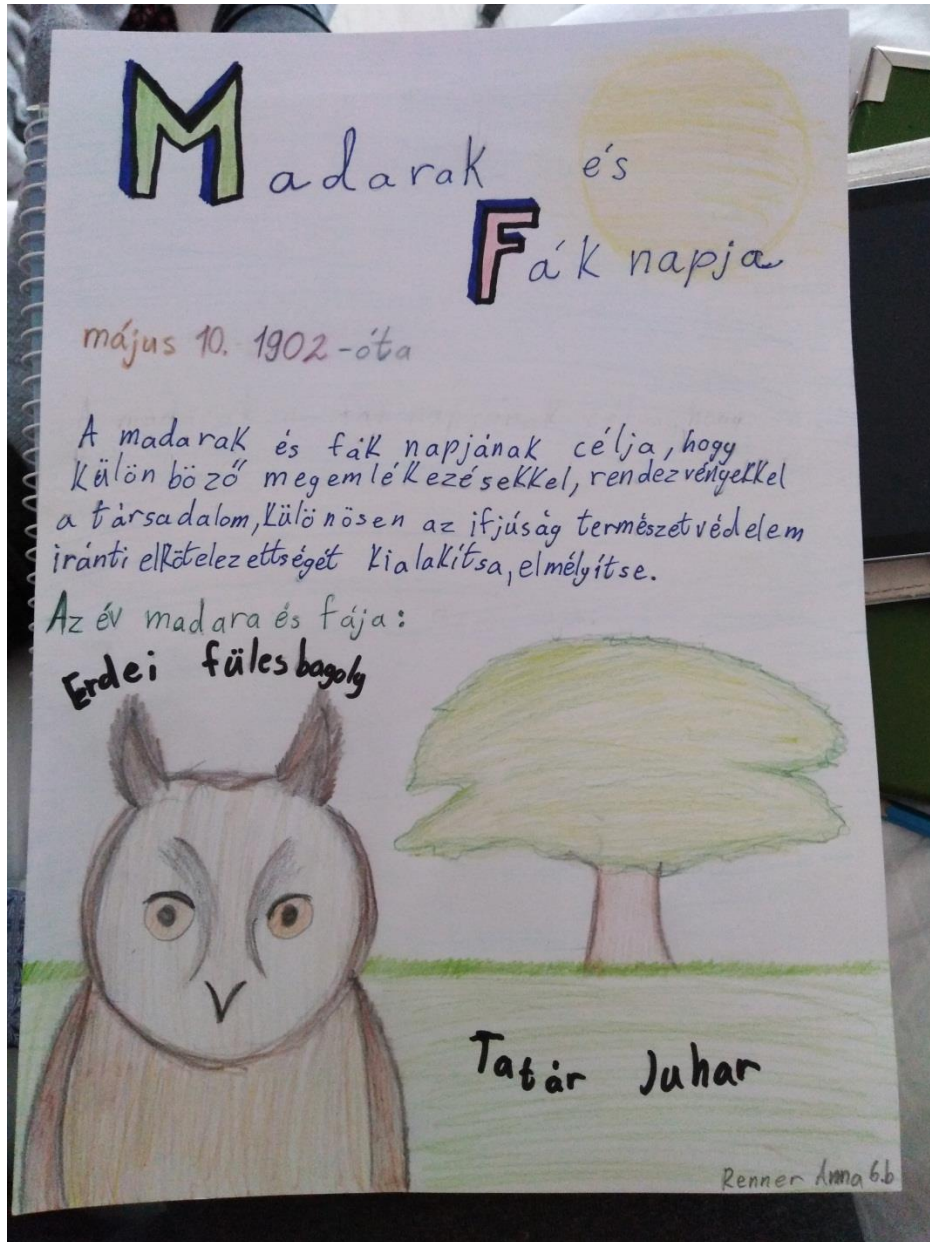 Madarak és
Fák napja
május 10. 1902-óta
A madarak és fák napjának célja, hogy
különböző megemlékezésekkel, rendezvényekkel
a társadalom, különösen az ifjúság természetvédelem
iránti elkötelezettségét kialakítsa, elmélyítse.
Az év madara és fája:
Erdei fülesbagoly
Tatár Juhar
Renner Anna 6.b